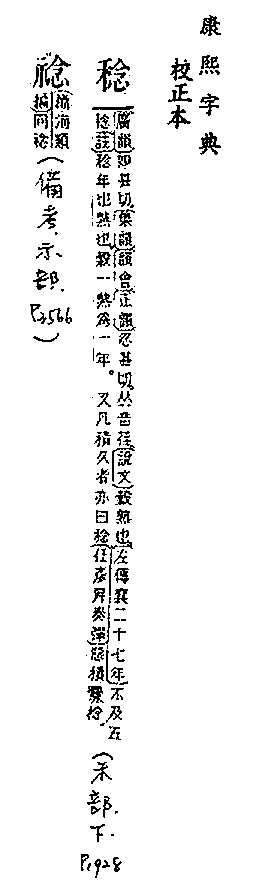 康熙字典
校正本
稔
廣韻如甚切集韻韻會正韻忍甚切𠀤音荏說文穀熟也左傳襄二十七年不及五
稔註稔年也熟也穀一熟爲一年。又凡積久者亦曰稔任彥昇奏彈惡積釁稔
(禾部.下.P.928
䄒
篇海類
編同稔
(備考.示部.P.2566)